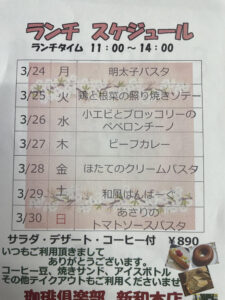 ランチ スケジュール
ランチタイム 11:00～14:00
3/24 月 明太子パスタ
3/25 火 鶏と根菜の照り焼きソテー
3/26 水 小エビとブロッコリーの
ペペロンチーノ
3/27 木 ビーフカレー
3/28 金 ほたてのクリームパスタ
3/29 土 和風はんばーぐ
3/30 日 あさりの
トマトソースパスタ
サラダ・デザート・コーヒー付 ¥890
いつもご利用頂きまして
ありがとうございます。
コーヒー豆、焼きサンド、アイスボトル
その他テイクアウトもご利用くださいませ
珈琲倶楽部 新和本店